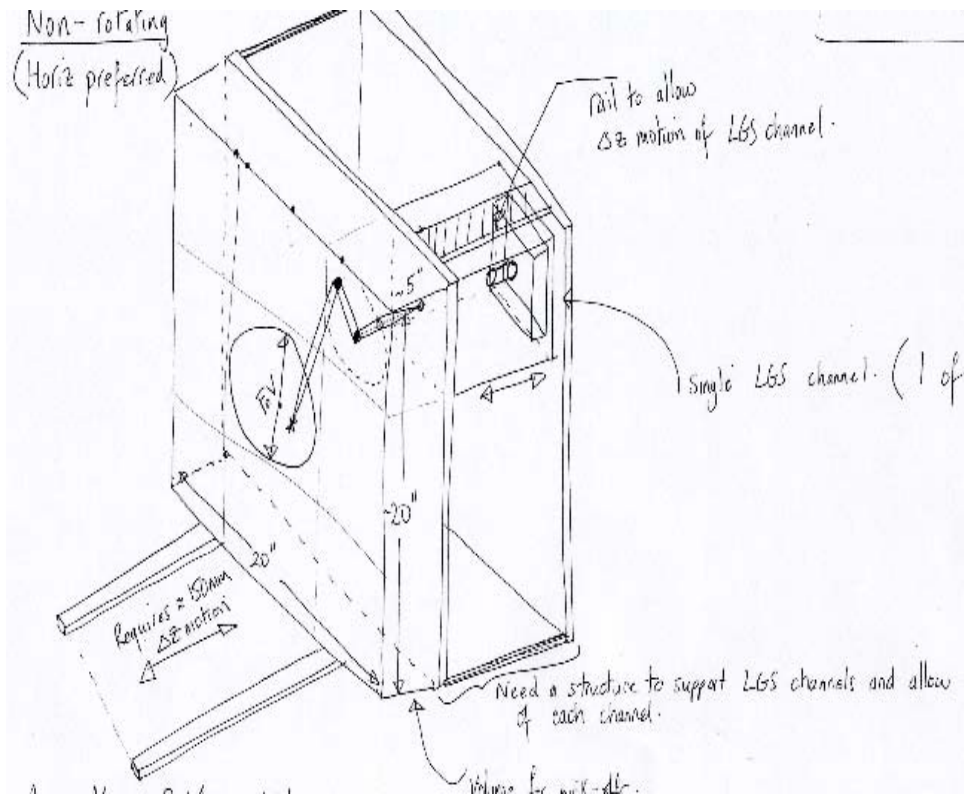 Non-rotating
(Horiz preferred)
rail to allow
Δz motion of LGS channel.
~5"
FoV
single LGS channel. (1 of
~20"
20"
Requires ≈ 150mm
Δz motion
Need a structure to support LGS channels and allow
of each channel.
for pick-offs.